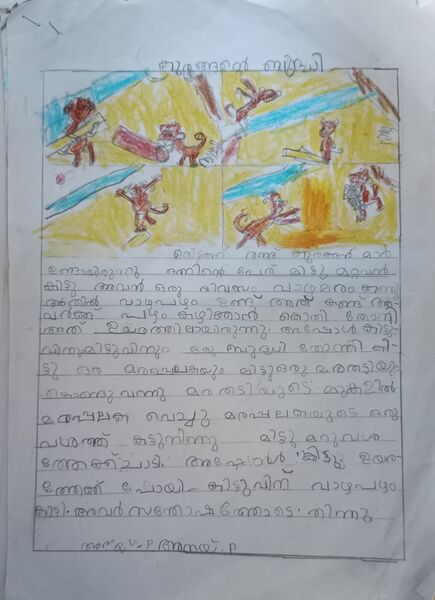 കുരങ്ങന്റെ ബുദ്ധി
ഒരിടത്ത് രണ്ടു കുരങ്ങൻ മാർ
ഉണ്ടായിരുന്നു ഒന്നിന്റെ പേര് മിട്ടു മറ്റവൻ
കിട്ടു അവൻ ഒരു ദിവസം വാഴമരം കണ്ടു
അതിൽ വാഴപഴം ഉണ്ട് അത് കണ്ട് അ
വർക്ക് പഴം കഴിക്കാൻ കൊതി തോന്നി
അത് ഉയരത്തിലായിരുന്നു. അപ്പോൾ കിട്ടു
വിനും മിട്ടുവിനും ഒരു ബുദ്ധി തോന്നി കി
ട്ടു ഒരു മരപ്പലകയും മിട്ടു ഒരു മരതടിയും
കൊണ്ടുവന്നു മരതടിയുടെ മുകളിൽ
മരപ്പലക വെച്ചു മരപ്പലകയുടെ ഒരു
വശത്ത് കിട്ടുനിന്നു മിട്ടു മറുവശ
ത്തേക്ക് ചാടി. അപ്പോൾ കിട്ടു ഉയര
ത്തേക്ക് പോയി കിട്ടുവിന് വാഴപഴം
കിട്ടി. അവർ സന്തോഷത്തോടെ തിന്നു.
അനയ്. P